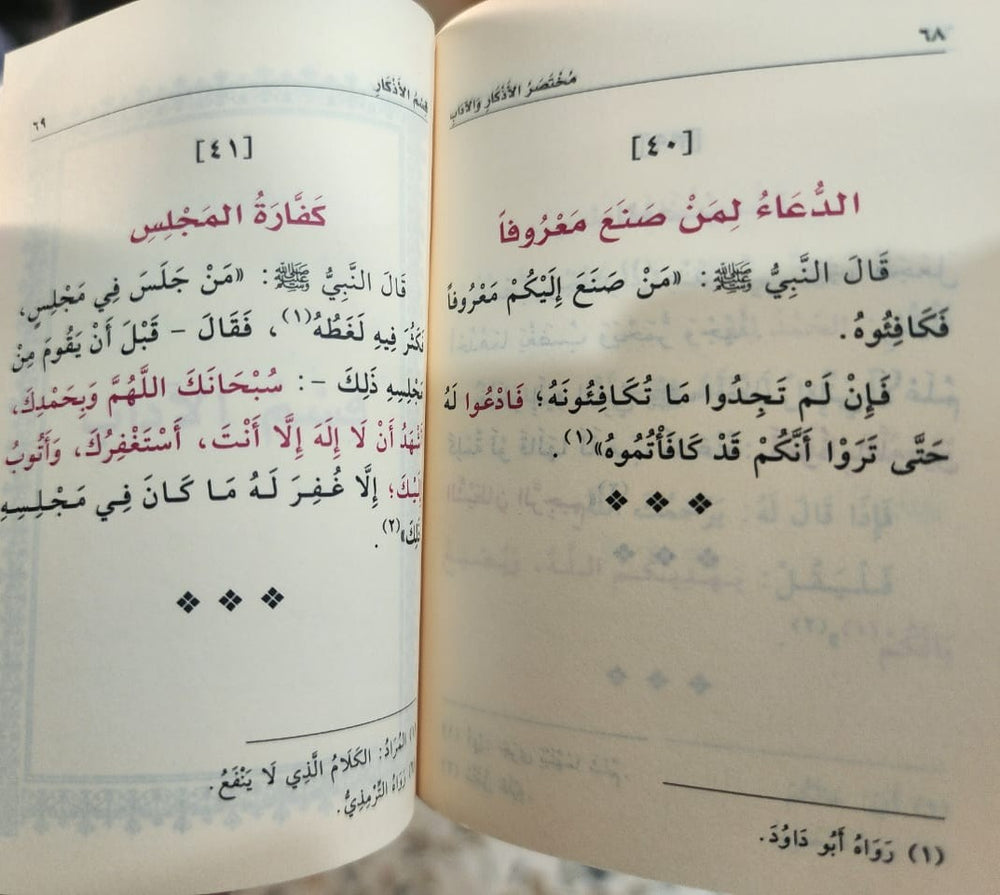 ٦٨
مُخْتَصَرُ الأَذْكَارِ وَالآدَابِ
[٤٠]
الدُّعَاءُ لِمَنْ صَنَعَ مَعْرُوفاً
قَالَ النَّبِيُّ ﷺ: «مَنْ صَنَعَ إِلَيْكُمْ مَعْرُوفاً
فَكَافِئُوهُ.
فَإِنْ لَمْ تَجِدُوا مَا تُكَافِئُونَهُ؛ فَادْعُوا لَهُ
حَتَّى تَرَوْا أَنَّكُمْ قَدْ كَافَأْتُمُوهُ»(١).
(١) رَوَاهُ أَبُو دَاوُدَ.
قِسْمُ الأَذْكَارِ
٦٩
[٤١]
كَفَّارَةُ المَجْلِسِ
قَالَ النَّبِيُّ ﷺ: «مَنْ جَلَسَ فِي مَجْلِسٍ،
فَكَثُرَ فِيهِ لَغَطُهُ(١)، فَقَالَ - قَبْلَ أَنْ يَقُومَ مِنْ
مَجْلِسِهِ ذَلِكَ -: سُبْحَانَكَ اللَّهُمَّ وَبِحَمْدِكَ،
أَشْهَدُ أَنْ لَا إِلَهَ إِلَّا أَنْتَ، أَسْتَغْفِرُكَ، وَأَتُوبُ
إِلَيْكَ؛ إِلَّا غُفِرَ لَهُ مَا كَانَ فِي مَجْلِسِهِ
ذَلِكَ»(٢).
(١) المُرَادُ: الكَلَامُ الَّذِي لَا يَنْفَعُ.
(٢) رَوَاهُ التِّرْمِذِيُّ.